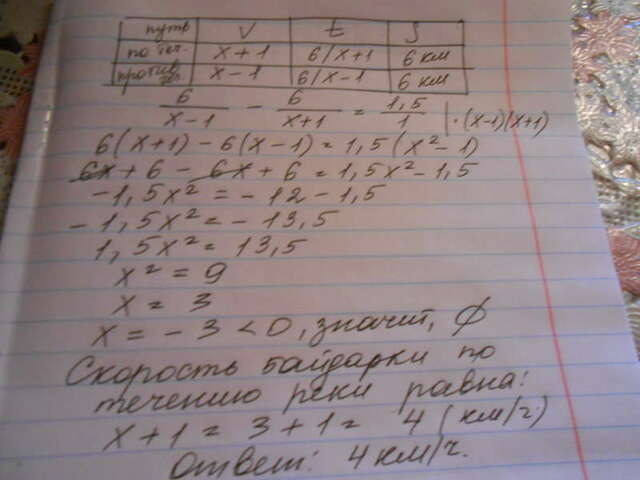 путь V t S
по теч. x+1 6/x+1 6 км
против теч. x-1 6/x-1 6 км
6/x-1 - 6/x+1 = 1,5/1 |·(x-1)(x+1)
6(x+1)-6(x-1)=1,5(x²-1)
6x+6-6x+6=1,5x²-1,5
-1,5x²=-12-1,5
-1,5x²=-13,5
1,5x²=13,5
x²=9
x=3
x=-3<0, значит, ∅
Скорость байдарки по
течению реки равна:
x+1=3+1= 4 (км/ч)
Ответ: 4 км/ч.